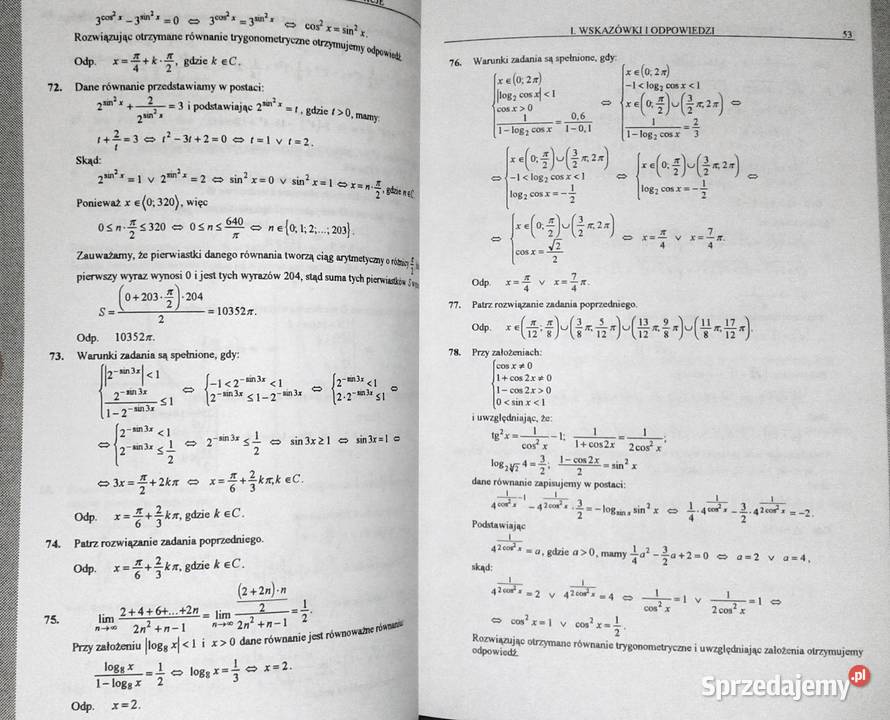 3^{cos² x} − 3^{sin² x} = 0 ⇔ 3^{cos² x} = 3^{sin² x} ⇔ cos² x = sin² x.
Rozwiązując otrzymane równanie trygonometryczne otrzymujemy odpowiedź.
Odp. x = π/4 + k·π/2, gdzie k ∈ C.
72. Dane równanie przedstawiamy w postaci:
2^{sin² x} + 2/2^{sin² x} = 3 i podstawiając 2^{sin² x} = t, gdzie t > 0, mamy:
t + 2/t = 3 ⇔ t² − 3t + 2 = 0 ⇔ t = 1 ∨ t = 2.
Skąd:
2^{sin² x} = 1 ∨ 2^{sin² x} = 2 ⇔ sin² x = 0 ∨ sin² x = 1 ⇔ x = n·π/2, gdzie n ∈ C.
Ponieważ x ∈ ⟨0; 320⟩, więc
0 ≤ n·π/2 ≤ 320 ⇔ 0 ≤ n ≤ 640/π ⇔ n ∈ {0; 1; 2; ...; 203}.
Zauważamy, że pierwiastki danego równania tworzą ciąg arytmetyczny o różnicy π/2
pierwszy wyraz wynosi 0 i jest tych wyrazów 204, stąd suma tych pierwiastków S
S = (0 + 203·π/2)·204 / 2 = 10352π.
Odp. 10352π.
73. Warunki zadania są spełnione, gdy:
{ |2^{−sin 3x}| < 1 ; 2^{−sin 3x}/(1 − 2^{−sin 3x}) ≤ 1 ⇔ { −1 < 2^{−sin 3x} < 1 ; 2^{−sin 3x} ≤ 1 − 2^{−sin 3x} ⇔ { 2^{−sin 3x} < 1 ; 2·2^{−sin 3x} ≤ 1 ⇔
⇔ { 2^{−sin 3x} < 1 ; 2^{−sin 3x} ≤ 1/2 ⇔ 2^{−sin 3x} ≤ 1/2 ⇔ sin 3x ≥ 1 ⇔ sin 3x = 1 ⇔
⇔ 3x = π/2 + 2kπ ⇔ x = π/6 + 2/3 kπ, k ∈ C.
Odp. x = π/6 + 2/3 kπ, gdzie k ∈ C.
74. Patrz rozwiązanie zadania poprzedniego.
Odp. x = π/6 + 2/3 kπ, gdzie k ∈ C.
75. lim_{n→∞} (2+4+6+...+2n)/(2n² + n − 1) = lim_{n→∞} ((2+2n)·n/2)/(2n² + n − 1) = 1/2.
Przy założeniu |log₈ x| < 1 i x > 0 dane równanie jest równoważne równaniu
log₈ x/(1 − log₈ x) = 1/2 ⇔ log₈ x = 1/3 ⇔ x = 2.
Odp. x = 2.
I. WSKAZÓWKI I ODPOWIEDZI 53
76. Warunki zadania są spełnione, gdy:
{ x ∈ (0; 2π) ; |log₂ cos x| < 1 ; cos x > 0 ; 1/(1 − log₂ cos x) = 0,6/(1 − 0,1) ⇔ { x ∈ (0; 2π) ; −1 < log₂ cos x < 1 ; x ∈ (0; π/2) ∪ (3/2 π; 2π) ; 1/(1 − log₂ cos x) = 2/3 ⇔
⇔ { x ∈ (0; π/2) ∪ (3/2 π; 2π) ; −1 < log₂ cos x < 1 ; log₂ cos x = −1/2 ⇔ { x ∈ (0; π/2) ∪ (3/2 π; 2π) ; log₂ cos x = −1/2 ⇔
⇔ { x ∈ (0; π/2) ∪ (3/2 π; 2π) ; cos x = √2/2 ⇔ x = π/4 ∨ x = 7/4 π.
Odp. x = π/4 ∨ x = 7/4 π.
77. Patrz rozwiązanie zadania poprzedniego.
Odp. x ∈ (π/12; π/8) ∪ (3/8 π; 5/12 π) ∪ (13/12 π; 9/8 π) ∪ (11/8 π; 17/12 π).
78. Przy założeniach:
{ cos x ≠ 0
1 + cos 2x ≠ 0
1 − cos 2x > 0
0 < sin x < 1
i uwzględniając, że:
tg² x = 1/cos² x − 1; 1/(1 + cos 2x) = 1/(2 cos² x);
log_{2∛2} 4 = 3/2; (1 − cos 2x)/2 = sin² x
dane równanie zapisujemy w postaci:
4^{1/cos² x − 1} − 4^{1/(2cos² x)}·3/2 = −log_{sin x} sin² x ⇔ 1/4·4^{1/cos² x} − 3/2·4^{1/(2cos² x)} = −2.
Podstawiając
4^{1/(2cos² x)} = a, gdzie a > 0, mamy 1/4 a² − 3/2 a + 2 = 0 ⇔ a = 2 ∨ a = 4,
skąd:
4^{1/(2cos² x)} = 2 ∨ 4^{1/(2cos² x)} = 4 ⇔ 1/cos² x = 1 ∨ 1/(2cos² x) = 1 ⇔
⇔ cos² x = 1 ∨ cos² x = 1/2.
Rozwiązując otrzymane równanie trygonometryczne i uwzględniając założenia otrzymujemy
odpowiedź.
Sprzedajemy.pl